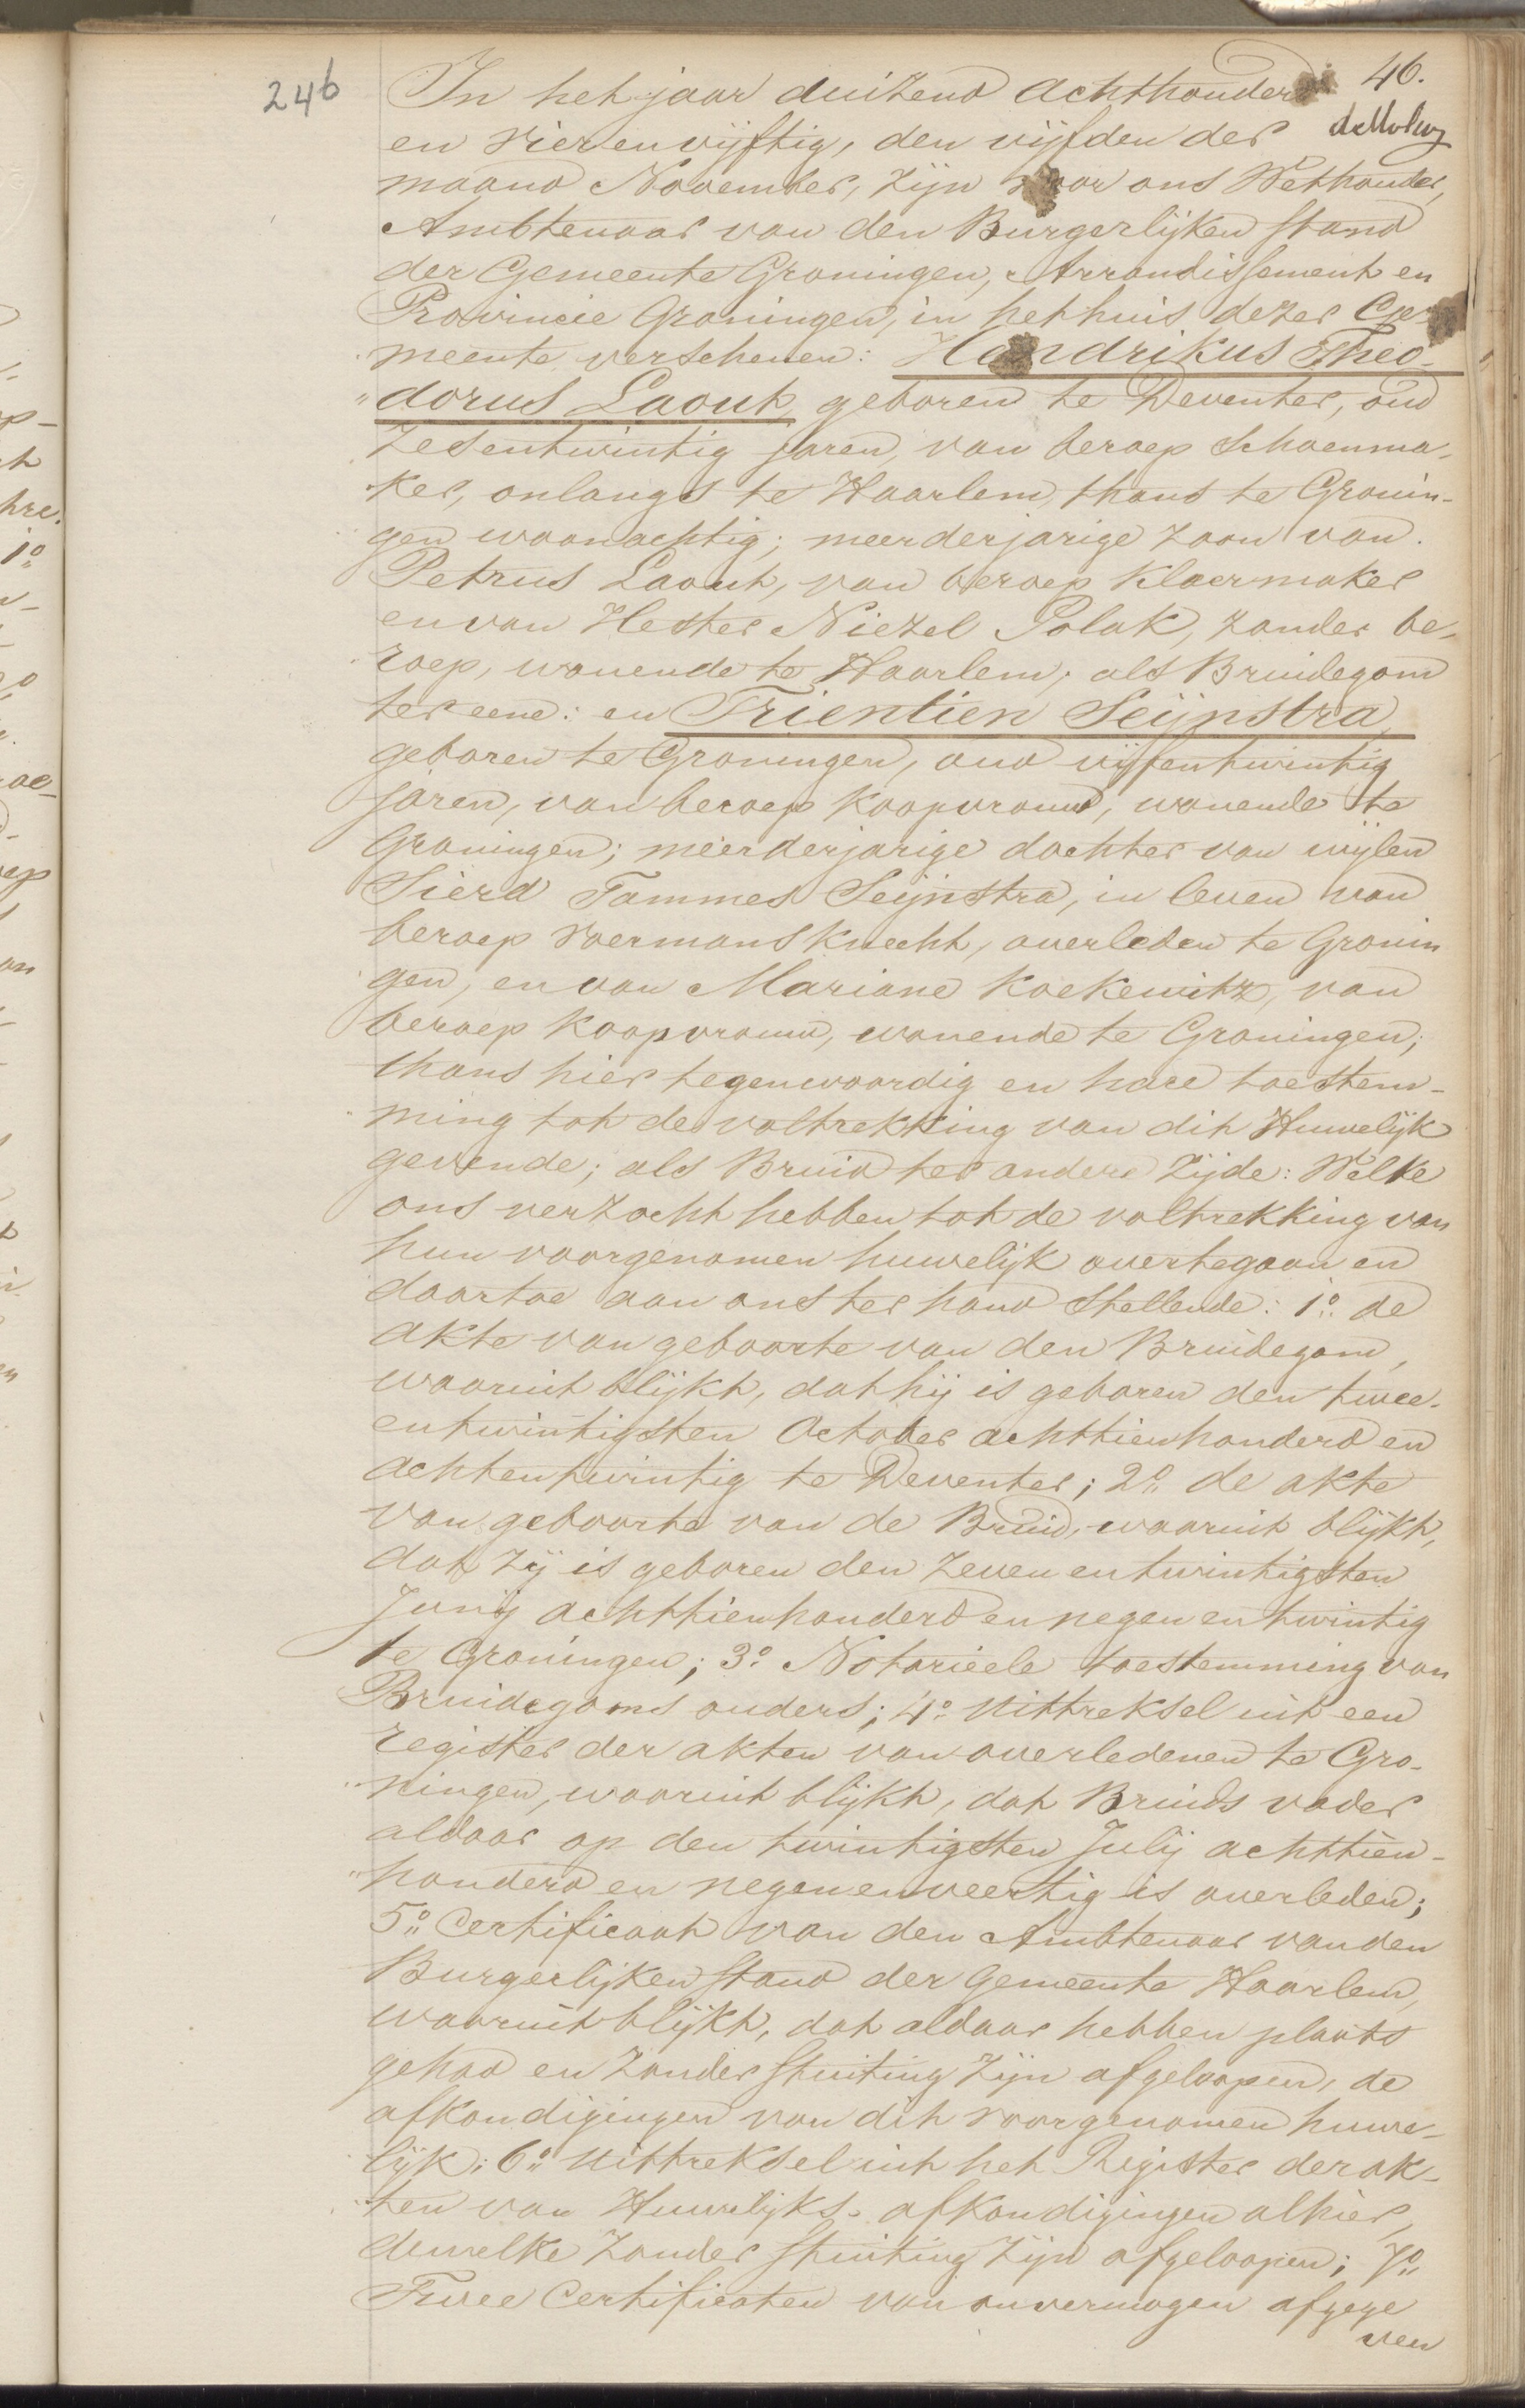 246
46.
In het jaar duizend achthonderd
en vierenvijftig, den vijfden der
maand November, zijn voor ons Wethouder,
Ambtenaar van den Burgerlijken stand
der Gemeente Groningen, Arrondissement en
Provincie Groningen, in het huis dezer Ge-
meente verschenen: Hendrikus Theo-
"dorus Laouk, geboren te Deventer, oud
zesentwintig jaren, van beroep Schoenma-
ker, onlangs te Haarlem, thans te Gronin-
gen woonachtig; meerderjarige zoon van
Petrus Laouk, van beroep kleermaker
en van Hester Niezel Polak, zonder be-
roep, wonende te Haarlem, als Bruidegom
ter eene: en Trientien Seijnstra,
geboren te Groningen, oud vijfentwintig
jaren, van beroep koopvrouw, wonende te
Groningen; meerderjarige dochter van wijlen
Sierd Tammes Seijnstra, in leven van
beroep voermansknecht, overleden te Gronin
gen, en van Mariane Koekewitz, van
beroep koopvrouw, wonende te Groningen,
thans hier tegenwoordig en hare toestem-
ming tot de voltrekking van dit Huwelijk
gevende; als Bruid ter andere zijde: Welke
ons verzocht hebben tot de voltrekking van
hun voorgenomen huwelijk overtegaan en
daartoe aan ons ter hand stellende: 1o. de
akte van geboorte van den Bruidegom,
waaruit blijkt, dat hij is geboren den twee-
entwintigsten October achttienhonderd en
achtentwintig te Deventer; 2o. de akte
van geboorte van de Bruid, waaruit blijkt,
dat zij is geboren den zevenentwintigsten
Junij achttienhonderd en negenentwintig
te Groningen; 3o. Notarieele toestemming van
Bruidegoms ouders; 4o. Uittreksel uit een
register der akten van overledenen te Gro-
"ningen, waaruit blijkt, dat Bruids vader
aldaar op den twintigsten Julij achttien-
"honderd en negenenveertig is overleden;
5o. Certificaat van den Ambtenaar van den
Burgerlijken stand der Gemeente Haarlem,
waaruit blijkt, dat aldaar hebben plaats
gehad en zonder stuiting zijn afgeloopen, de
afkondigingen van dit voorgenomen huwe-
lijk; 6o. Uittreksel uit het Register der ak-
ten van Huwelijks-afkondigingen alhier,
dewelke zonder stuiting zijn afgeloopen; 7o.
Twee Certificaten van onvermogen afgege
ven